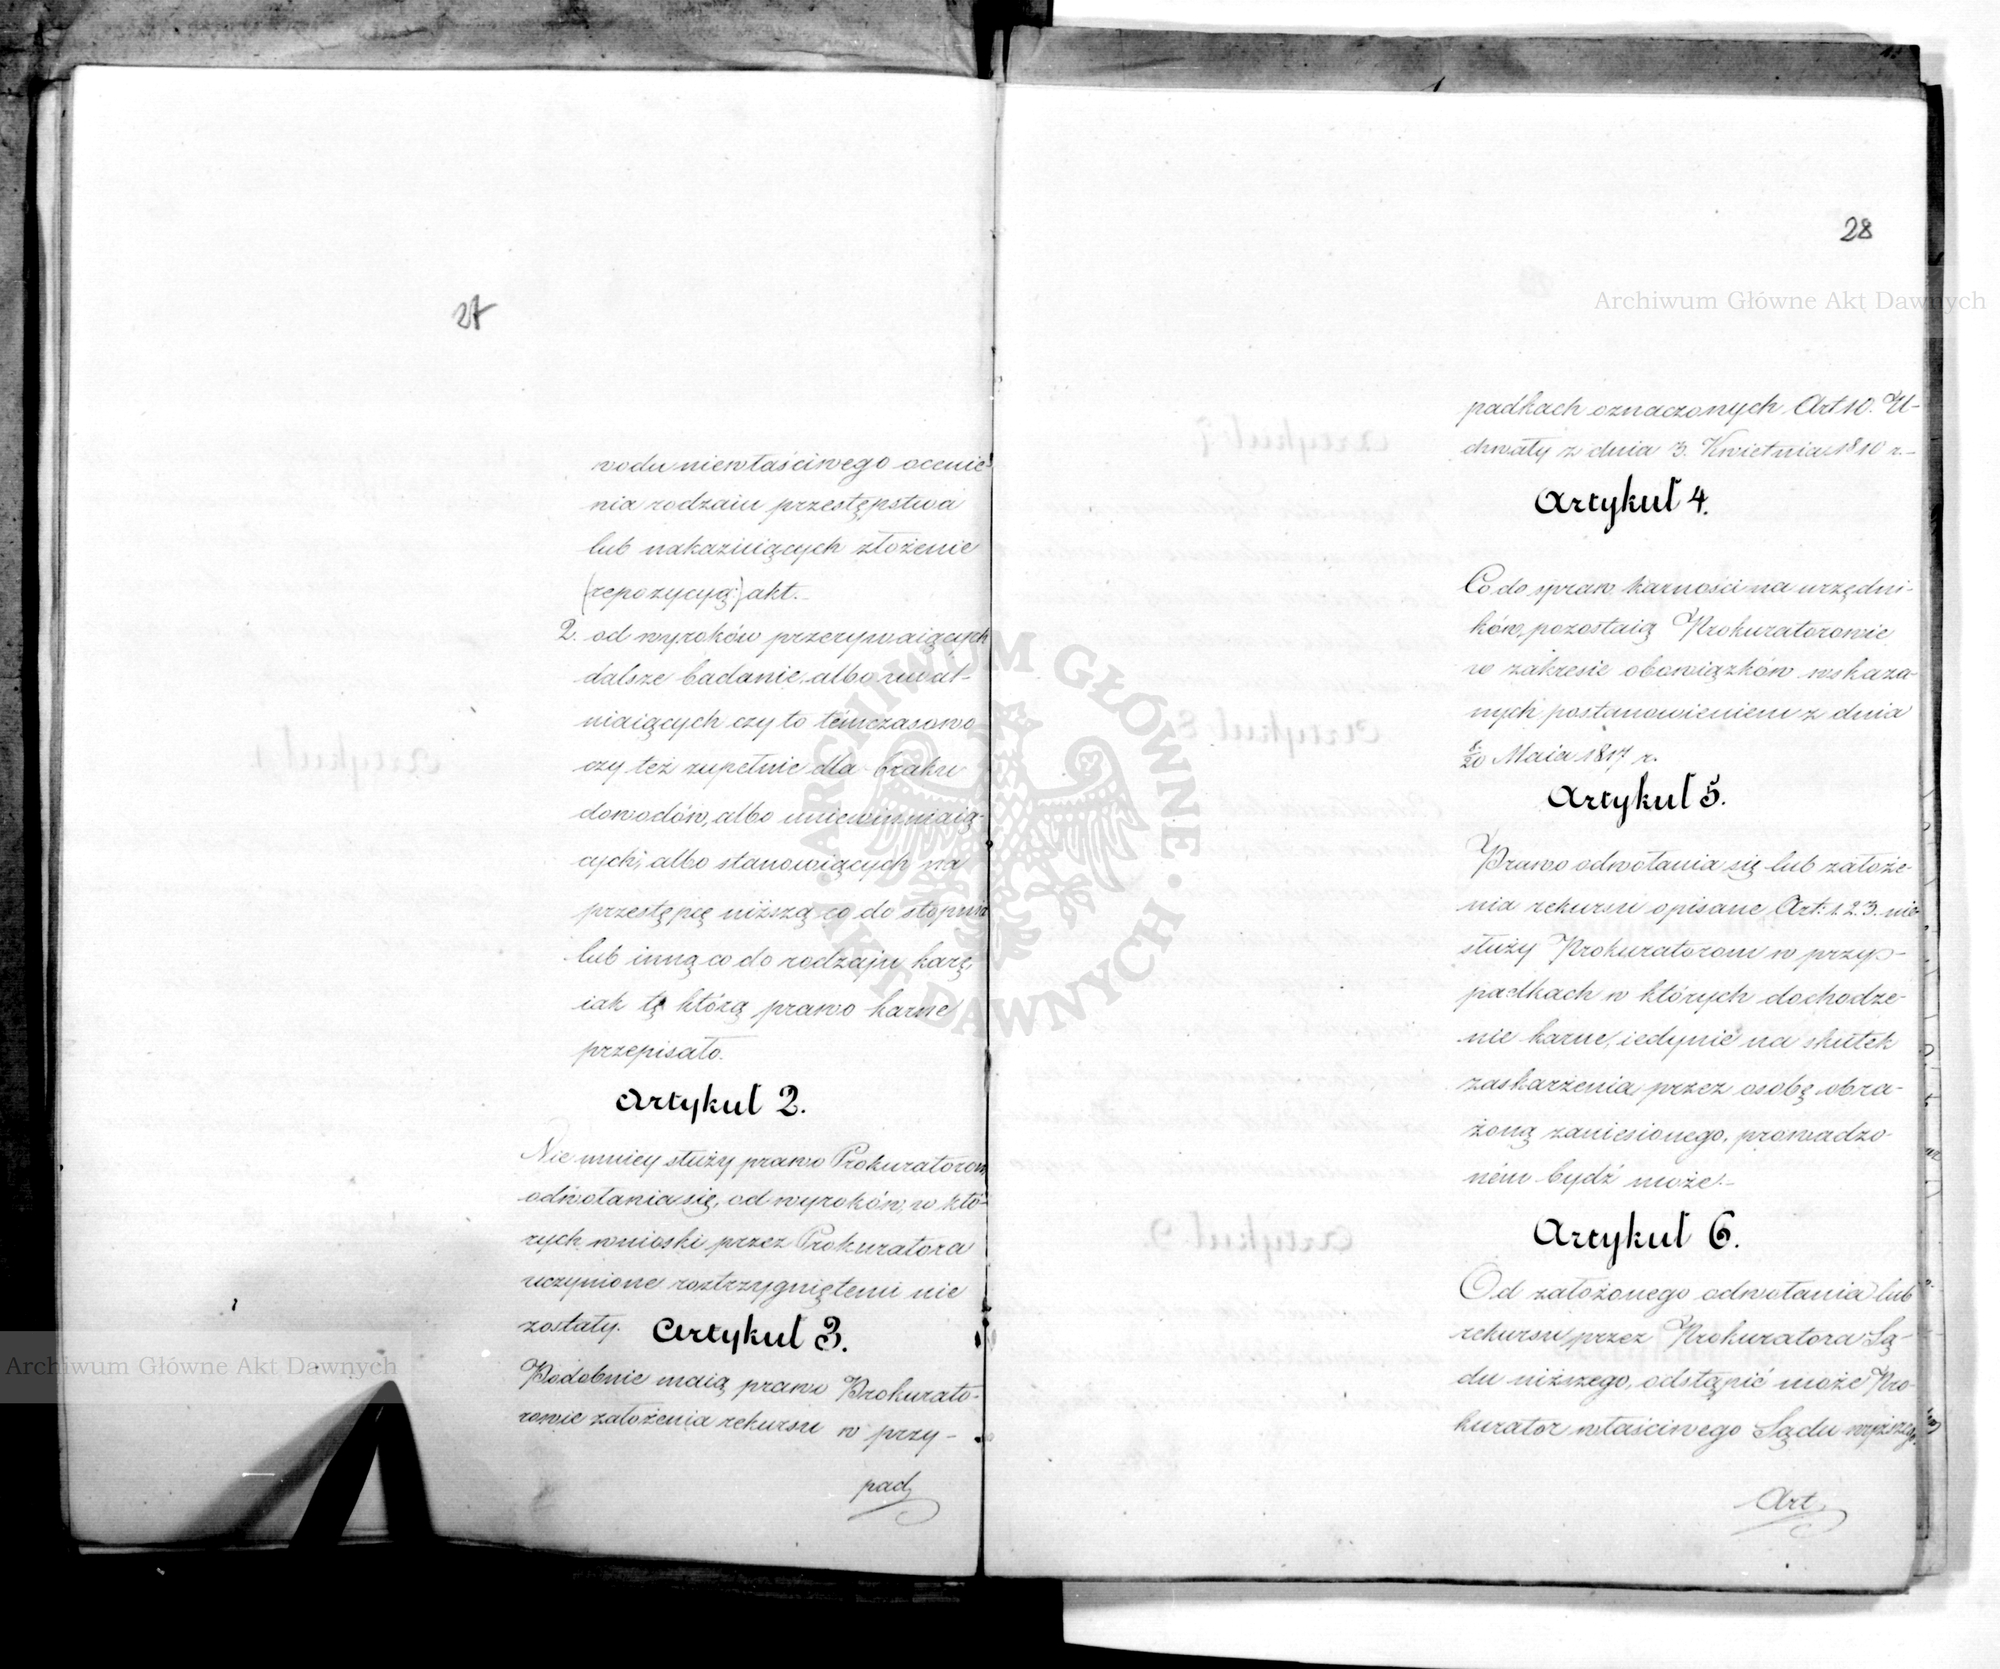 27
wodu niewłaściwego ocenie-
nia rodzaiu przestępstwa
lub nakazuiących złożenie
(repozycyą:) akt.-
2. od wyroków przerywaiących
dalsze badanie, albo uwal-
niaiących czy to témczasowo
czy też zupełnie dla braku
dowodów, albo uniewinniaią-
cych, albo stanowiących na
przestępię niższą co do stopnia
lub inną co do rodzaju karę,
iak tę którą prawo karne
przepisało.
Artykuł 2.
Nie mniey służy prawo Prokuratorom
odwołania się, od wyroków, w któ-
rych wnioski przez Prokuratora
uczynione roztrzygniętemi nie
zostały.
Artykuł 3.
Podobnie maią prawo Prokurato-
rowie założenia rekursu w przy-
pad
28
padkach oznaczonych Art 10. U-
chwały z dnia 3. Kwietnia 1810 r.-
Artykuł 4.
Co do spraw karności na urzędni-
ków, pozostaią Prokuratorowie
w zakresie obowiązków wskaza-
nych postanowieniem z dnia
8/20 Maia 1817 r.
Artykuł 5.
Prawo odwołania się lub założe-
nia rekursu opisane Art: 1. 2. 3. nie
służy Prokuratorom w przy-
padkach w których dochodze-
nie karne, iedynie na skutek
zaskarżenia przez osobę obra-
żoną zaniesionego, prowadzo-
ném bydź może.-
Artykuł 6.
Od założonego odwołania lub
rekursu przez Prokuratora Są-
du niższego, odstąpić może Pro-
kurator właściwego Sądu wyższego.
Art.
Archiwum Główne Akt Dawnych
Archiwum Główne Akt Dawnych
ARCHIWUM GŁÓWNE · AKT DAWNYCH ·